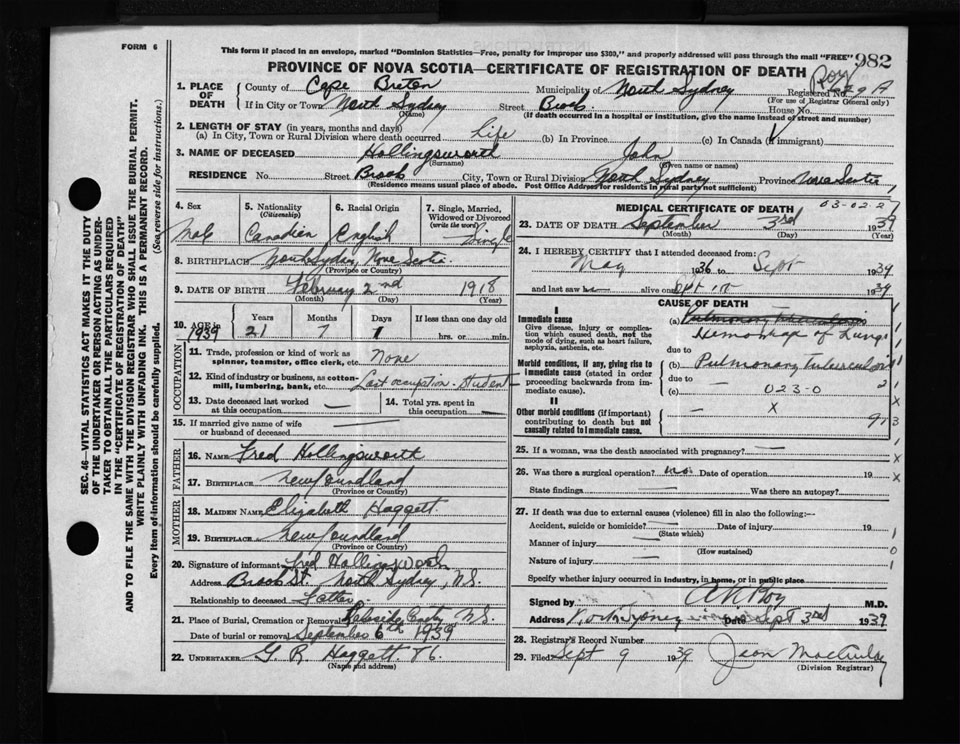 FORM 6
This form if placed in an envelope, marked "Dominion Statistics—Free, penalty for improper use $300," and properly addressed will pass through the mail "FREE" 982
PROVINCE OF NOVA SCOTIA—CERTIFICATE OF REGISTRATION OF DEATH
Roy
SEC. 46—VITAL STATISTICS ACT MAKES IT THE DUTY
OF THE UNDERTAKER OR PERSON ACTING AS UNDER-
TAKER TO OBTAIN ALL THE PARTICULARS REQUIRED
IN THE "CERTIFICATE OF REGISTRATION OF DEATH"
AND TO FILE THE SAME WITH THE DIVISION REGISTRAR WHO SHALL ISSUE THE BURIAL PERMIT.
WRITE PLAINLY WITH UNFADING INK. THIS IS A PERMANENT RECORD.
Every item of information should be carefully supplied. (See reverse side for instructions.)
1. PLACE OF DEATH
County of Cape Breton Municipality of North Sydney Registered No.
(For use of Registrar General only)
If in City or Town North Sydney Street Brook House No.
(Name) (If death occurred in a hospital or institution, give the name instead of street and number)
2. LENGTH OF STAY (in years, months and days)
(a) In City, Town or Rural Division where death occurred Life (b) In Province (c) In Canada (if immigrant)
3. NAME OF DECEASED Hollingsworth John
(Surname) (Given name or names)
RESIDENCE No. Street Brook City, Town or Rural Division North Sydney Province Nova Scotia
(Residence means usual place of abode. Post Office Address for residents in rural parts not sufficient)
4. Sex 5. Nationality (Citizenship) 6. Racial Origin 7. Single, Married, Widowed or Divorced (write the word)
Male Canadian English Single
8. BIRTHPLACE North Sydney Nova Scotia
(Province or Country)
9. DATE OF BIRTH February 2nd 1918
(Month) (Day) (Year)
10. AGE in Years Months Days If less than one day old
1939 21 7 1 hrs. or min.
OCCUPATION
11. Trade, profession or kind of work as spinner, teamster, office clerk, etc. None
12. Kind of industry or business, as cotton-mill, lumbering, bank, etc. Last occupation - Student
13. Date deceased last worked at this occupation — 14. Total yrs. spent in this occupation —
15. If married give name of wife or husband of deceased —
FATHER
16. NAME Fred Hollingsworth
17. BIRTHPLACE Newfoundland
(Province or Country)
MOTHER
18. MAIDEN NAME Elizabeth Haggett
19. BIRTHPLACE Newfoundland
(Province or Country)
20. Signature of informant Fred Hollingsworth
Address Brook St. North Sydney, N.S.
Relationship to deceased Father
21. Place of Burial, Cremation or Removal Lakeside Cemty N.S.
Date of burial or removal September 6th 1939
22. UNDERTAKER G. R. Haggett
(Name and address)
MEDICAL CERTIFICATE OF DEATH 03-02-2
23. DATE OF DEATH September 3rd 1939
(Month) (Day) (Year)
24. I HEREBY CERTIFY that I attended deceased from:
May 1936 to Sept 1939
and last saw h alive on Sept 1939
CAUSE OF DEATH
I
Immediate cause
Give disease, injury or complication which caused death, not the mode of dying, such as heart failure, asphyxia, asthenia, etc.
(a) Pulmonary Tuberculosis
Hemorrhage of Lungs
due to
Morbid conditions, if any, giving rise to immediate cause (stated in order proceeding backwards from immediate cause).
(b) Pulmonary tuberculosis
due to —
(c) 023-0
II
Other morbid conditions (if important) contributing to death but not causally related to immediate cause.
— X
25. If a woman, was the death associated with pregnancy? —
26. Was there a surgical operation? no Date of operation 19
State findings — Was there an autopsy?
27. If death was due to external causes (violence) fill in also the following:—
Accident, suicide or homicide? — Date of injury 19
(State which)
Manner of injury —
(How sustained)
Nature of injury —
Specify whether injury occurred in industry, in home, or in public place
Signed by Roy M.D.
Address North Sydney Date Sept 3rd 1939
28. Registrar's Record Number
29. Filed Sept 9 1939 Jean
(Division Registrar)